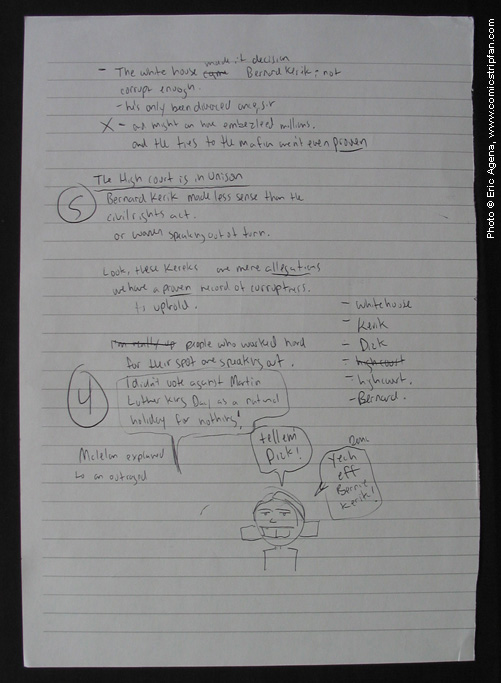 made it decision
- The white house came Bernard Kerik; not
corrupt enough.
- he's only been divorced once, sir
X - and might have embezzled millions.
and the ties to the mafia weren't even proven
The High court is in Unison
5
Bernard Kerik made less sense than the
civil rights act.
or women speaking out of turn.
Look, these Kereks are mere allegations
we have a proven record of corruptness.
to uphold.
- whitehouse
- Kerik
- Dick
- high court
- high court.
- Bernard.
I'm really up people who worked hard
for their spot are speaking out.
4
I didn't vote against Martin
Luther King Day as a national
holiday for nothing!
Mclelan explained
to an outraged
tell em
Dick!
Yeah
eff
Bernie
Kerik!
Photo © Eric Agena, www.comicstripfan.com